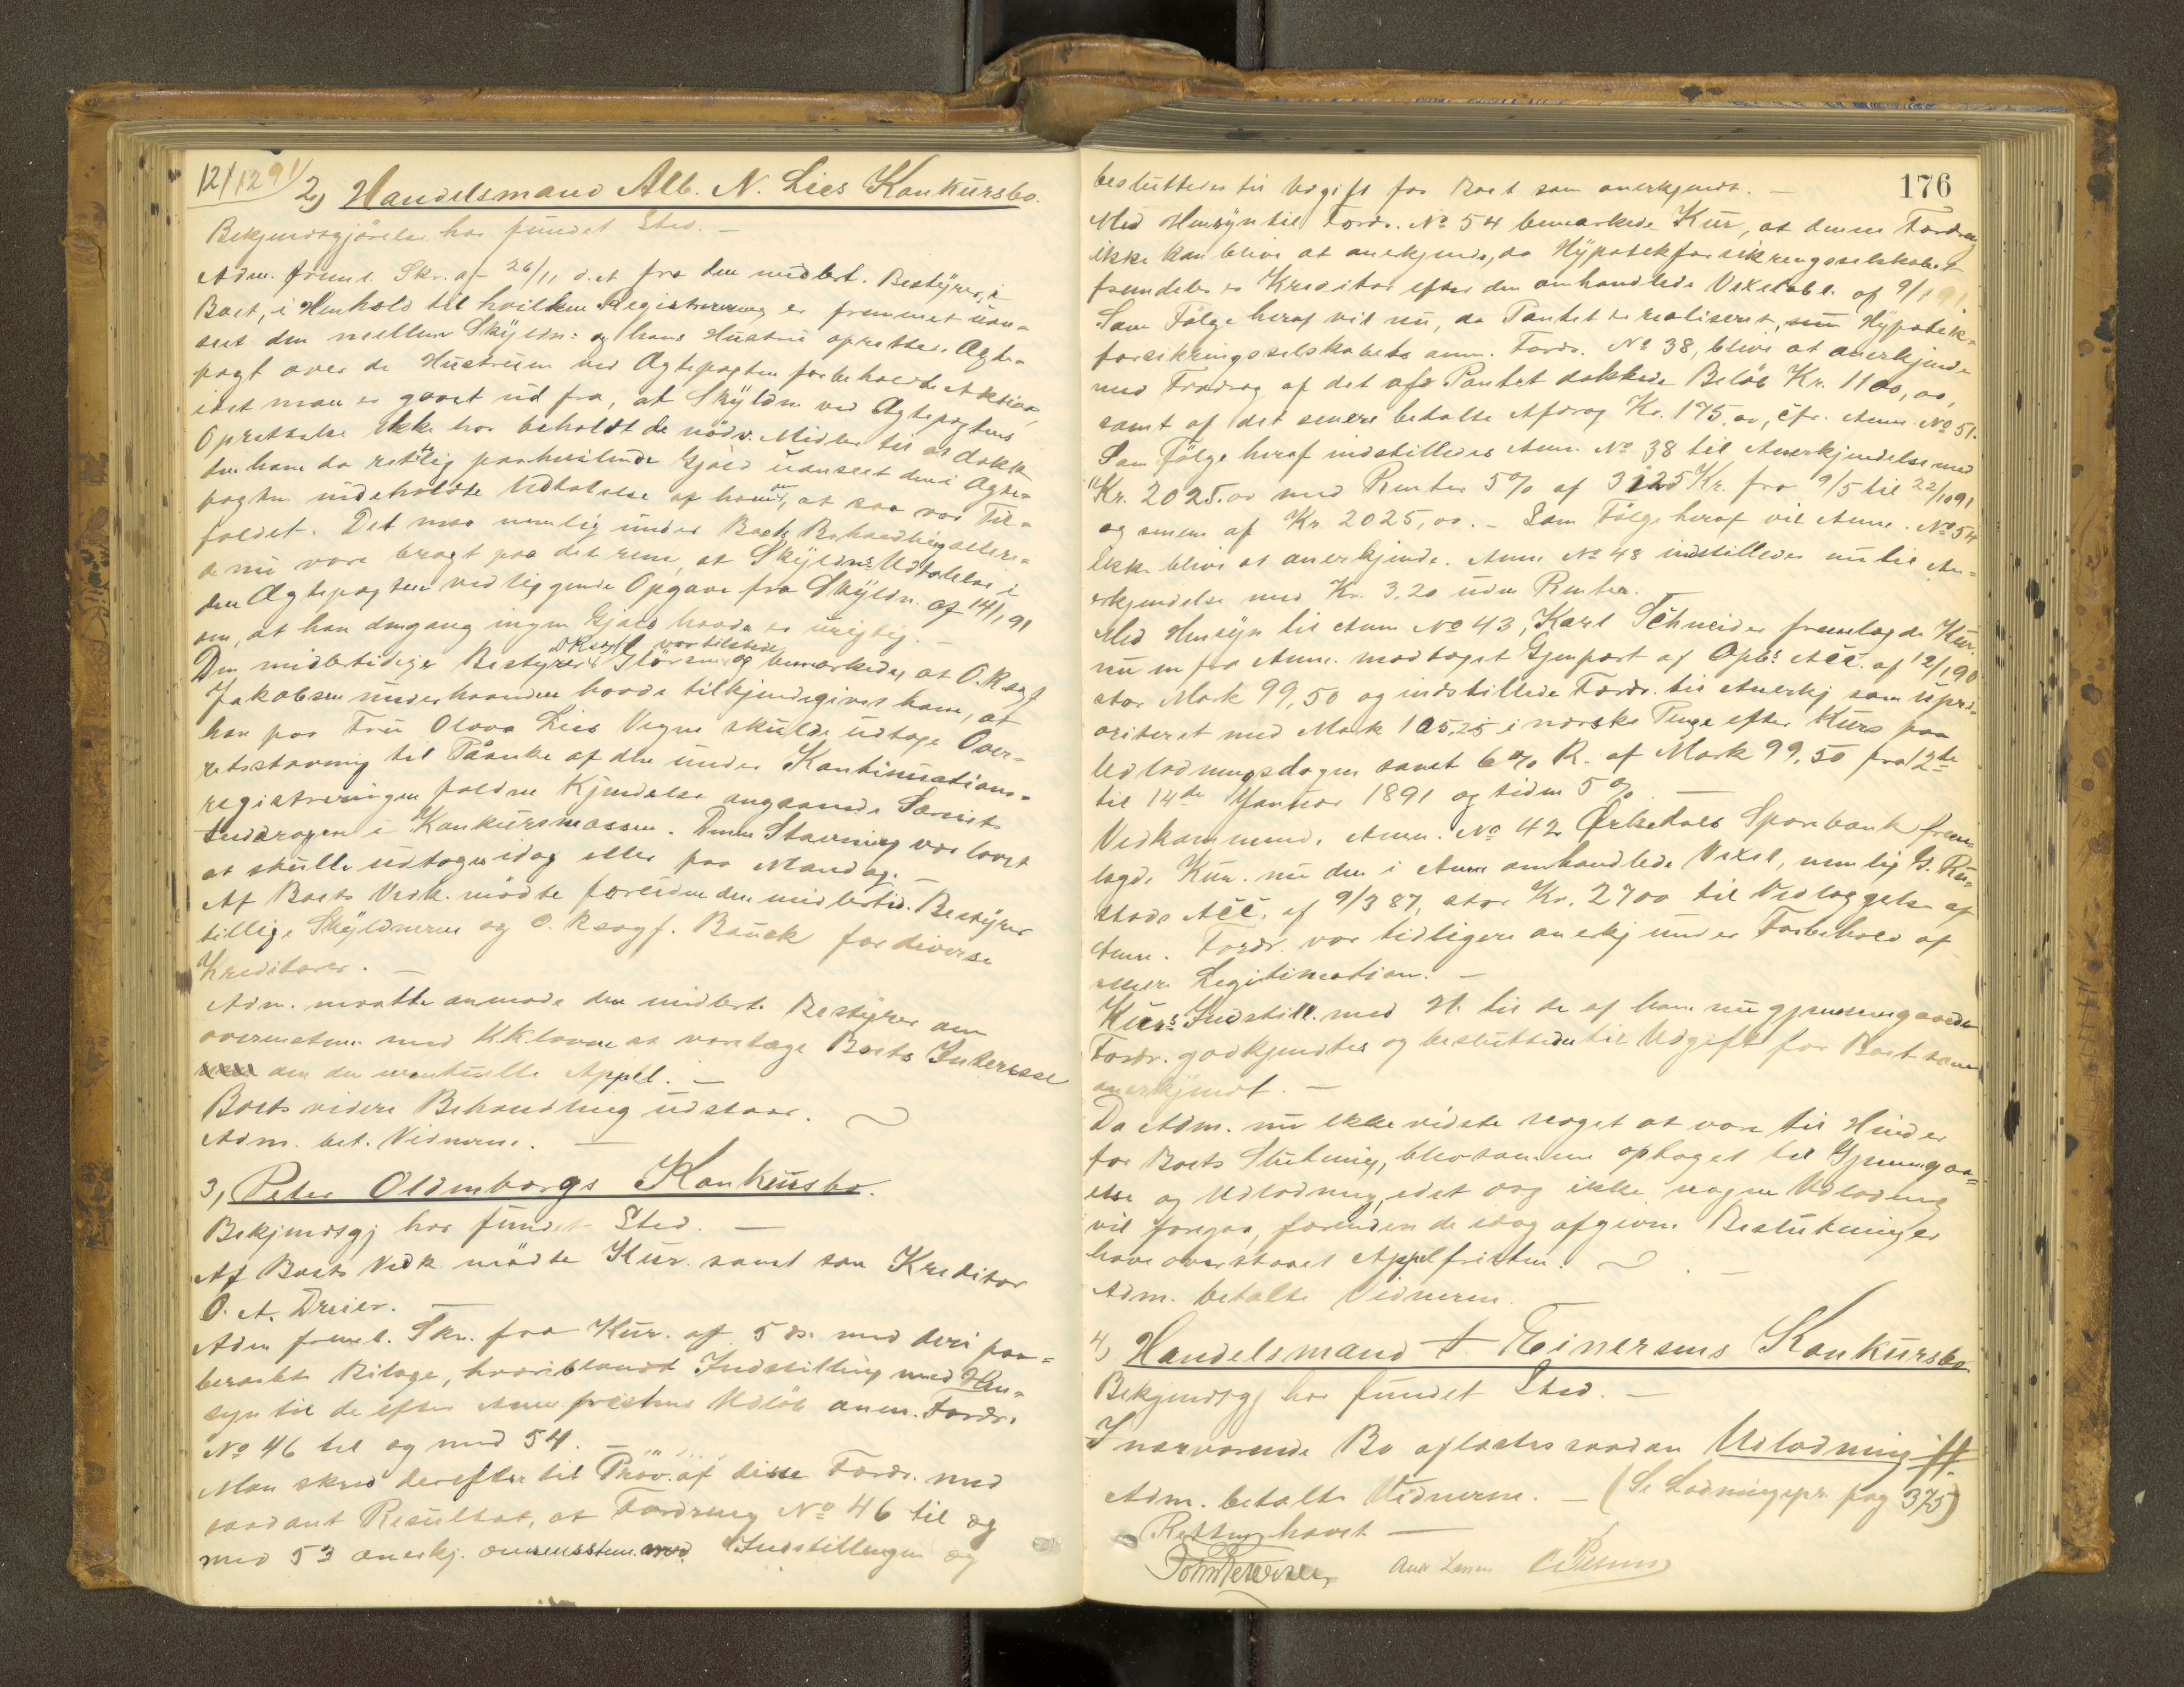 12/12 91
2) Handelsmand Alb. N. Lies Konkursbo.
Bekjendtgjörelse har fundet Sted. —
Adm. freml. Skr. af 26/11 d. A. fra den midlert. Bestÿrer i
Boet, i Henhold til hvilken Registrering er fremmet uan-
seet den mellem Skÿldn: og hans Hustru oprettede Ægte-
pagt over de Hustruen ved Ægtepagten forbeholdte Aktiva,
idet man er gaaet ud fra, at Skÿldn. ved Ægtepagtens
Oprettelse ikke har beholdt de nödv. Midler til at dække
den ham da retslig paahvilende Gjæld uanseet den i Ægte-
pagten indeholdte Udtalelse af ham, at saa var Til-
fældet. Det maa nemlig under Boets Behandling allere-
de nu være bragt paa det rene, at Skÿldns Udtalelse i
den Ægtepagten vedliggende Opgave fra Skÿldn. af 14/1 91
om, at han dengang ingen Gjæld havde er urigtig. —
Den midlertidige Bestÿrer O.Rsagf. Glörsen var tilstede og bemærkede, at O.Rsagf
Jakobsen underhaanden havde tilkjendegivet ham, at
han paa Fru Olava Lies Vegne skulde udtage Over-
retsstævning til Paaanke af den under Kontinuations-
registreringen faldne Kjendelse angaaende Særeiets
Inddragen i Konkursmassen. Denne Stævning var lovet
at skulle udtages idag eller paa Mandag. —
Af Boets Vedk. mödte foruden den midlertid. Bestÿrer
tillige Skÿldneren og O. Rsagf. Bauck for diverse
Kreditorer. —
Adm. maatte anmode den midlert. Bestÿrer om
overensstem. med K.K.loven at varetage Boets Interesse
om den eventuelle Appel. —
Boets videre Behandling udstaar.
Adm. bet. Vidnerne. —
3, Peter Oldenborgs Konkursbo.
Bekjendtgj har fundet Sted. —
Af Boets Vedk. mödte Kur. samt som Kreditor
O. A. Dreier. —
Adm freml. Skr. fra Kur. af 5 ds. med deri paa-
beraabte Bilage, hvoriblandt Indstilling med Hen-
syn til de efter Anm.fristens Udlöb anm. Fordr.
No 46 til og med 54. —
Man skred derefter til Pröv. af disse Fordr. med
saadant Resultat, at Fordring No 46 til og
med 53 anerkj. overensstem. med Indstillingen og
176
besluttedes til Udgift for Boet som anerkjendt. —
Med Hensÿn til Fordr. No 54 bemærkede Kur, at denne Fordring
ikke kan blive at anerkjende, da Hÿpotekforsikringsselskabet
fremdeles er Kreditor efter den omhandlede Vexelobl. af 9/1 91.
Som Fölge heraf vil nu, da Pantet er realiseret, Hÿpotek-
forsikringsselskabets anm. Fordr. No 38, blive at anerkjende
med Fradrag af det ved Pantet dækkede Belöb Kr. 1100,00,
samt af det senere betalte Afdrag Kr. 175.00, cfr. Anm. No 51.
Som Fölge heraf indstilledes Anm. No 38 til Anerkjendelse med
Kr. 2025.00 med Renter 5% af 3125 Kr. fra 9/5 til 22/10 91
og senere af Kr. 2025,00. — Som Fölge heraf vil Anm. No 54
ikke blive at anerkjende. Anm No 48 indstilledes nu til An-
erkjendelse med Kr. 3.20 uden Renter.
Med Hensÿn til Anm No 43, Karl Schneider fremlagde Kur.
nu en fra Anm. modtaget Gjenpart af Opbs Acc. af 12/1 90
stor Mark 99,50 og indstillede Fordr. til Anerkj som upri-
oriteret med Mark 105,25 i norske Penge efter Kurs paa
Udlodningsdagen samt 6% R. af Mark 99,50 fra 12te
til 14de Januar 1891 og siden 5%. —
Vedkommend. Anm. No 42 Örkedals Sparebank frem-
lagde Kur. nu den i Anm omhandlede Vexel, nemlig G. Ru-
stads Acc. af 9/3 87, stor Kr. 2700 til Vedlæggelse af
Anm. Fordr. var tidligere anerkj under Forbehold af
Legitimation. —
Kurs Indstill. med H. til de af ham nu gjennemgaaede
Fordr. godkjendtes og besluttedes til Udgift for Boet som
anerkjendt. —
Da Adm. nu ikke vidste noget at være til Hinder
for Boets Slutning, blev samme optaget til Gjennemgaa-
else og Udlodning, idet dog ikke nogen Udlodning
vil foregaa, forinden de idag afgivne Beslutninger
have overstaaet Appelfristen. —
Adm. betalte Vidnerne.
4) Handelsmand A. Einersens Konkursbo
Bekjendtgj har fundet Sted. —
I nærværende Bo aflæstes saadan Udlodning ff.
Adm. betalte Vidnerne. — (Se Lodningspr. pag 375)
Retten hævet —